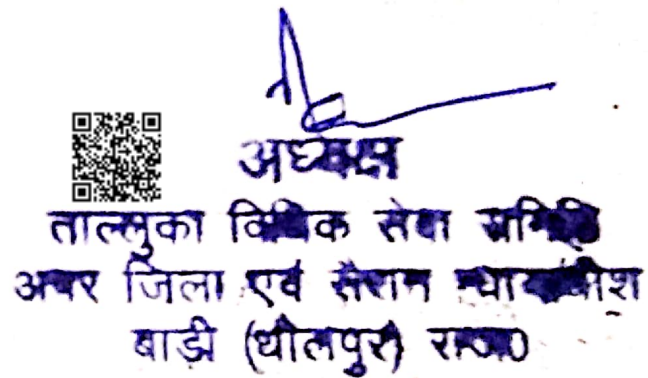 अध्यक्ष
ताल्लुका विधिक सेवा समिति
अपर जिला एवं सैशन न्यायाधीश
बाड़ी (धौलपुर) राज०